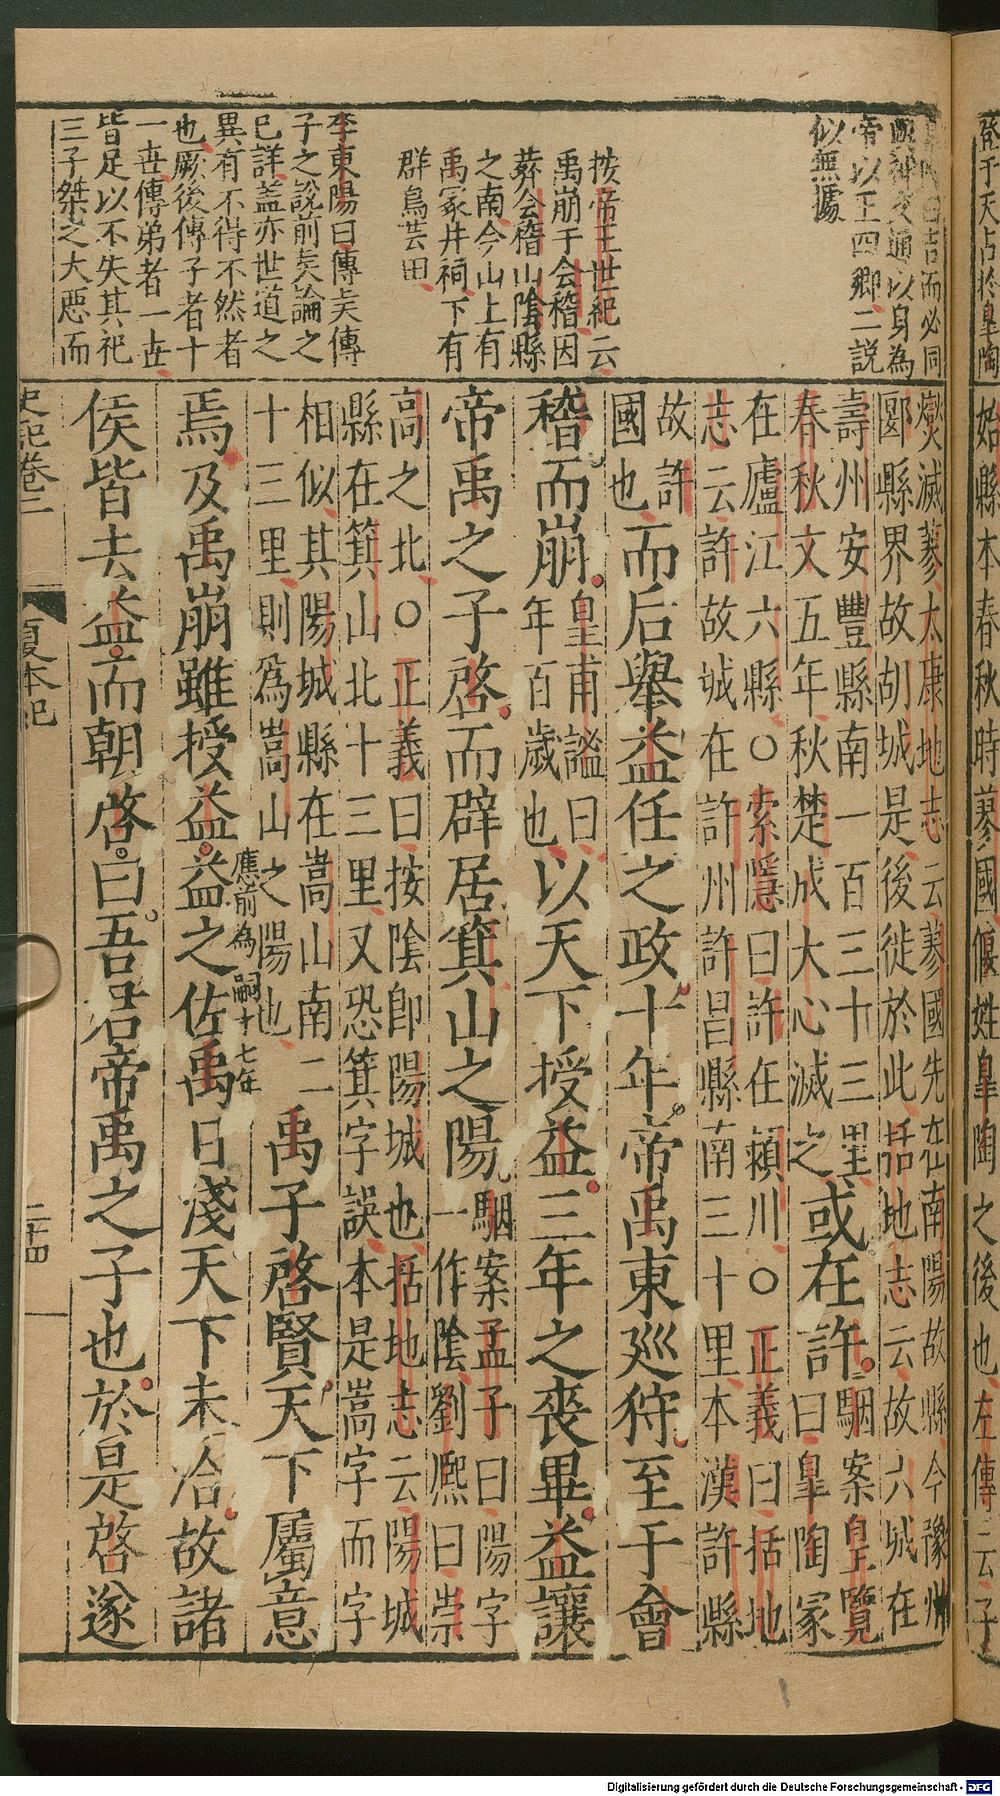 始縣本春秋時蓼國偃姓皐陶之後也左傳云子
而必同
與神交通以身為
帝以王四鄉二說
似無據
按帝王世紀云
禹崩于會稽因
葬會稽山隂縣
之南今山上有
禹冢井祠下有
群鳥芸田
李東陽曰傳矣傳
子之說前矣論之
已詳盖亦世道之
異有不得不然者
也厥後傳子者十
一世傳弟者一世
皆足以不失其祀
三子桀之大惡而
燮滅蓼太康地志云蓼國先在南陽故縣今豫州
郾縣界故胡城是後徙於此括地志云故六城在
壽州安豐縣南一百三十三里
春秋文五年秋楚成大心滅之
或在許
駰案皇覽
曰皐陶冢
在廬江六縣○索隱曰許在潁川○正義曰括地
志云許故城在許州許昌縣南三十里本漢許縣
故許
國也
而后舉益任之政十年帝禹東廵狩至于會
稽而崩
皇甫謐曰
年百歲也
以天下授益三年之喪畢益讓
帝禹之子啓而辟居箕山之陽
駰案孟子曰陽字
一作隂劉熈曰崇
高之北○正義曰按隂即陽城也括地志云陽城
縣在箕山北十三里又恐箕字誤本是嵩字而字
相似其陽城縣在嵩山南二
十三里則為嵩山之陽也
禹子啓賢天下屬意
應前為嗣十七年
焉及禹崩雖授益益之佐禹日淺天下未洽故諸
侯皆去益而朝啓曰吾君帝禹之子也於是啓遂
史記卷二
夏本紀
二十四
Digitalisierung gefördert durch die Deutsche Forschungsgemeinschaft - DFG